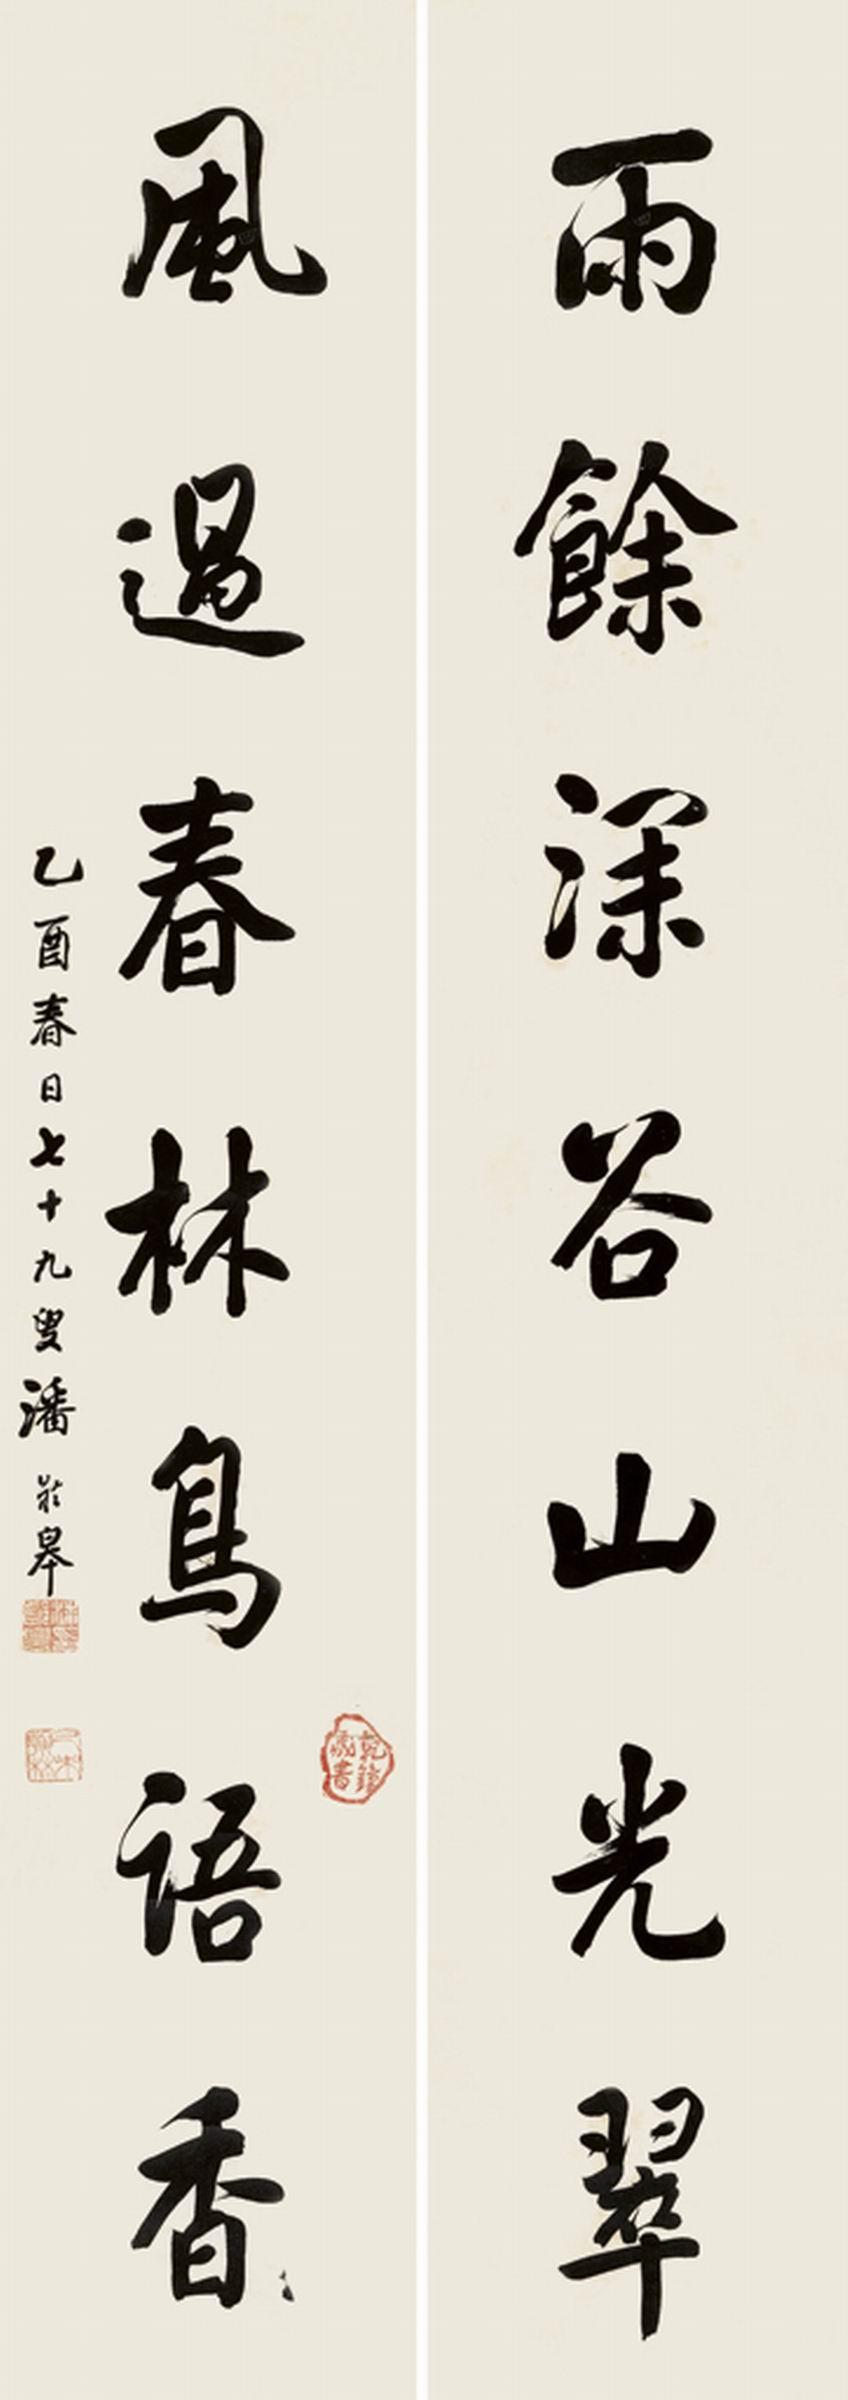 雨餘深谷山光翠
風過春林鳥語香
乙酉春日七十九叟潘齡皋